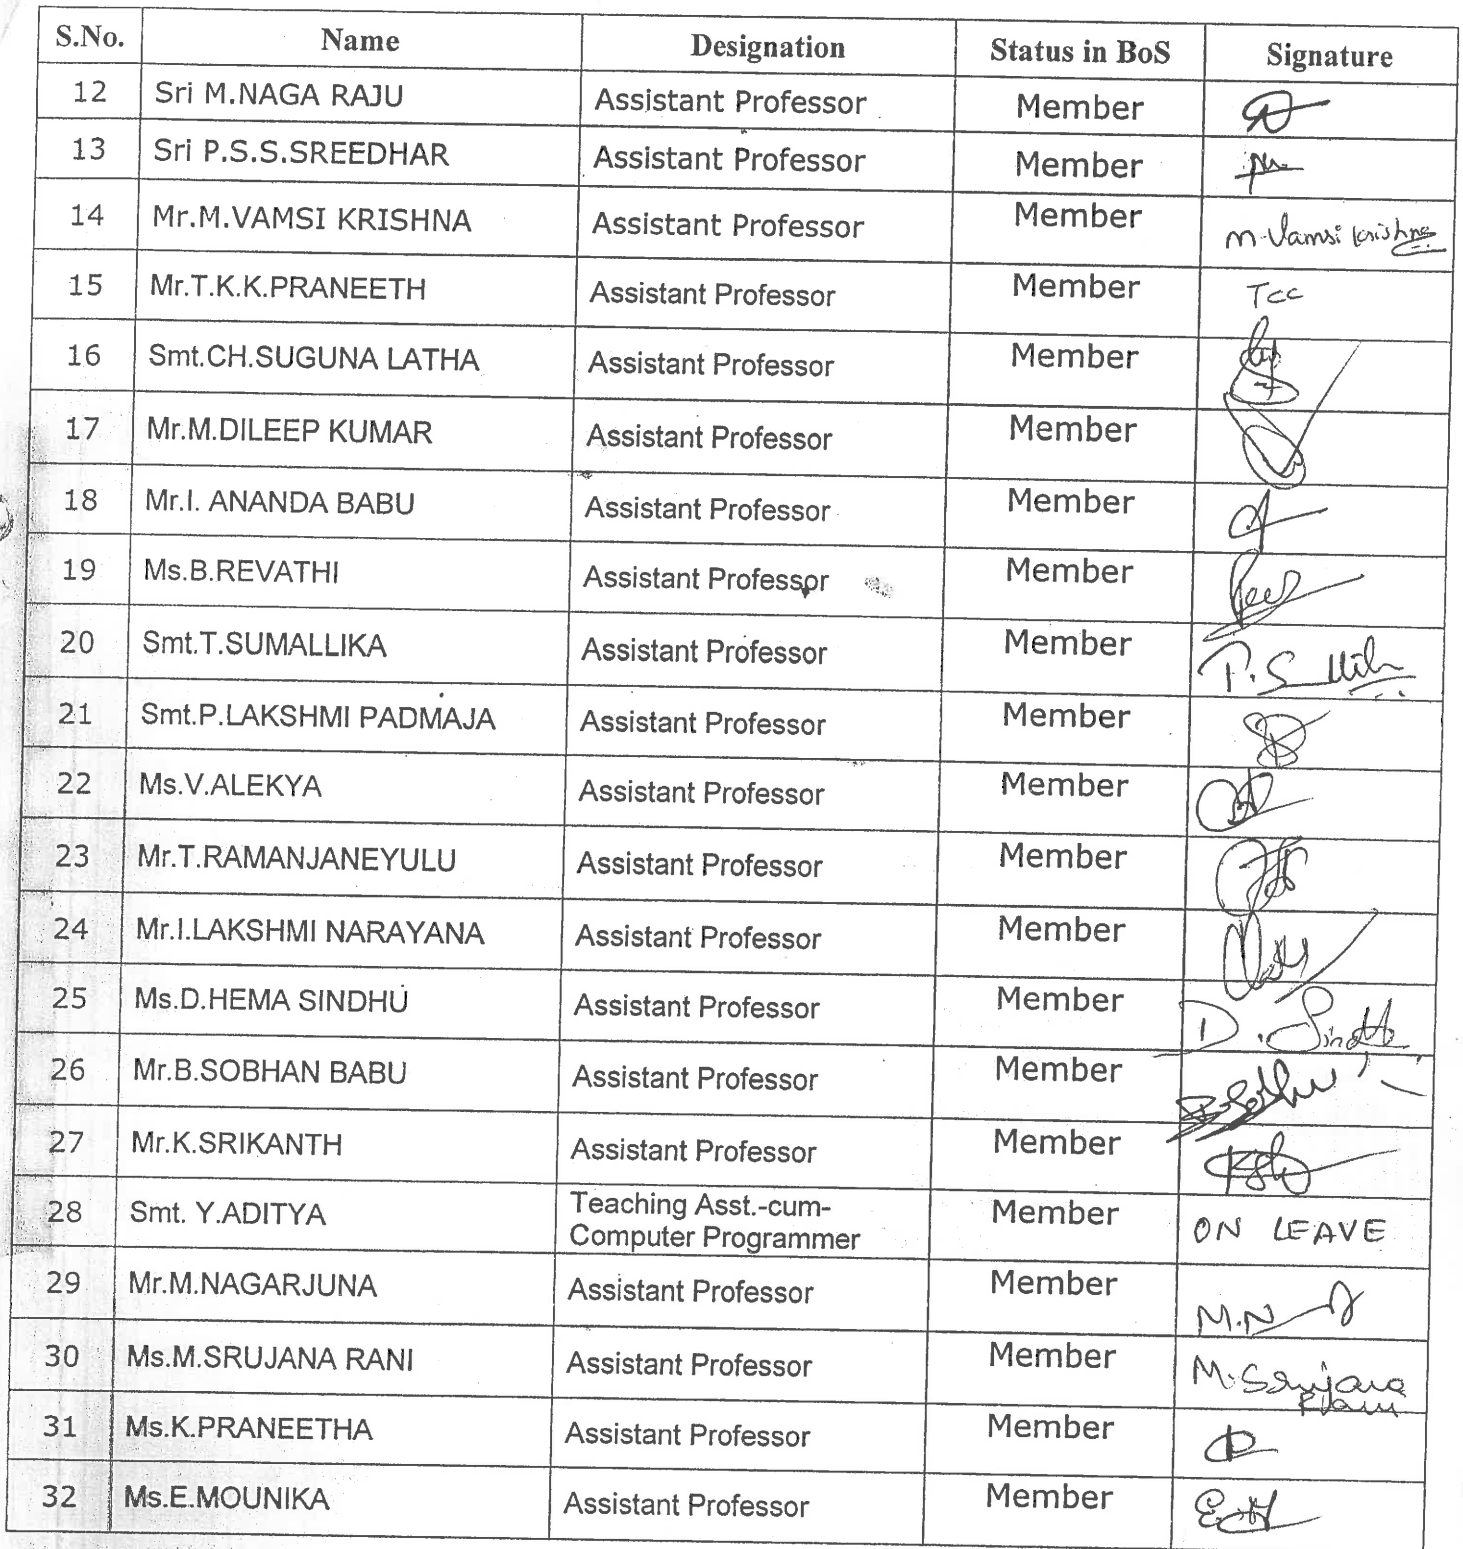 S.No. Name Designation Status in BoS Signature
12 Sri M.NAGA RAJU Assistant Professor Member
13 Sri P.S.S.SREEDHAR Assistant Professor Member
14 Mr.M.VAMSI KRISHNA Assistant Professor Member M.Vamsi Krishna
15 Mr.T.K.K.PRANEETH Assistant Professor Member
16 Smt.CH.SUGUNA LATHA Assistant Professor Member
17 Mr.M.DILEEP KUMAR Assistant Professor Member
18 Mr.I. ANANDA BABU Assistant Professor Member
19 Ms.B.REVATHI Assistant Professor Member
20 Smt.T.SUMALLIKA Assistant Professor Member
21 Smt.P.LAKSHMI PADMAJA Assistant Professor Member
22 Ms.V.ALEKYA Assistant Professor Member
23 Mr.T.RAMANJANEYULU Assistant Professor Member
24 Mr.I.LAKSHMI NARAYANA Assistant Professor Member
25 Ms.D.HEMA SINDHU Assistant Professor Member D.Sindhu
26 Mr.B.SOBHAN BABU Assistant Professor Member
27 Mr.K.SRIKANTH Assistant Professor Member
28 Smt. Y.ADITYA Teaching Asst.-cum- Member ON LEAVE
Computer Programmer
29 Mr.M.NAGARJUNA Assistant Professor Member M.N
30 Ms.M.SRUJANA RANI Assistant Professor Member M.Srujana
Rani
31 Ms.K.PRANEETHA Assistant Professor Member
32 Ms.E.MOUNIKA Assistant Professor Member